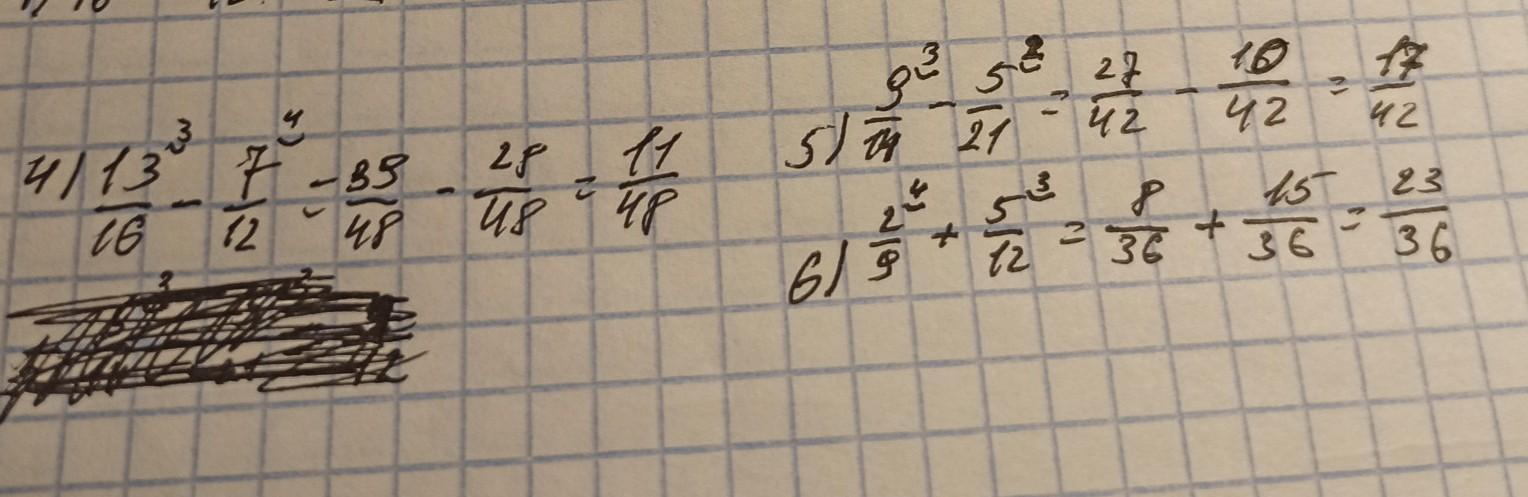 4) 13/16 ³ - 7/12 ⁴ = 39/48 - 28/48 = 11/48
5) 9/14 ³ - 5/21 ² = 27/42 - 10/42 = 17/42
6) 2/9 ⁴ + 5/12 ³ = 8/36 + 15/36 = 23/36